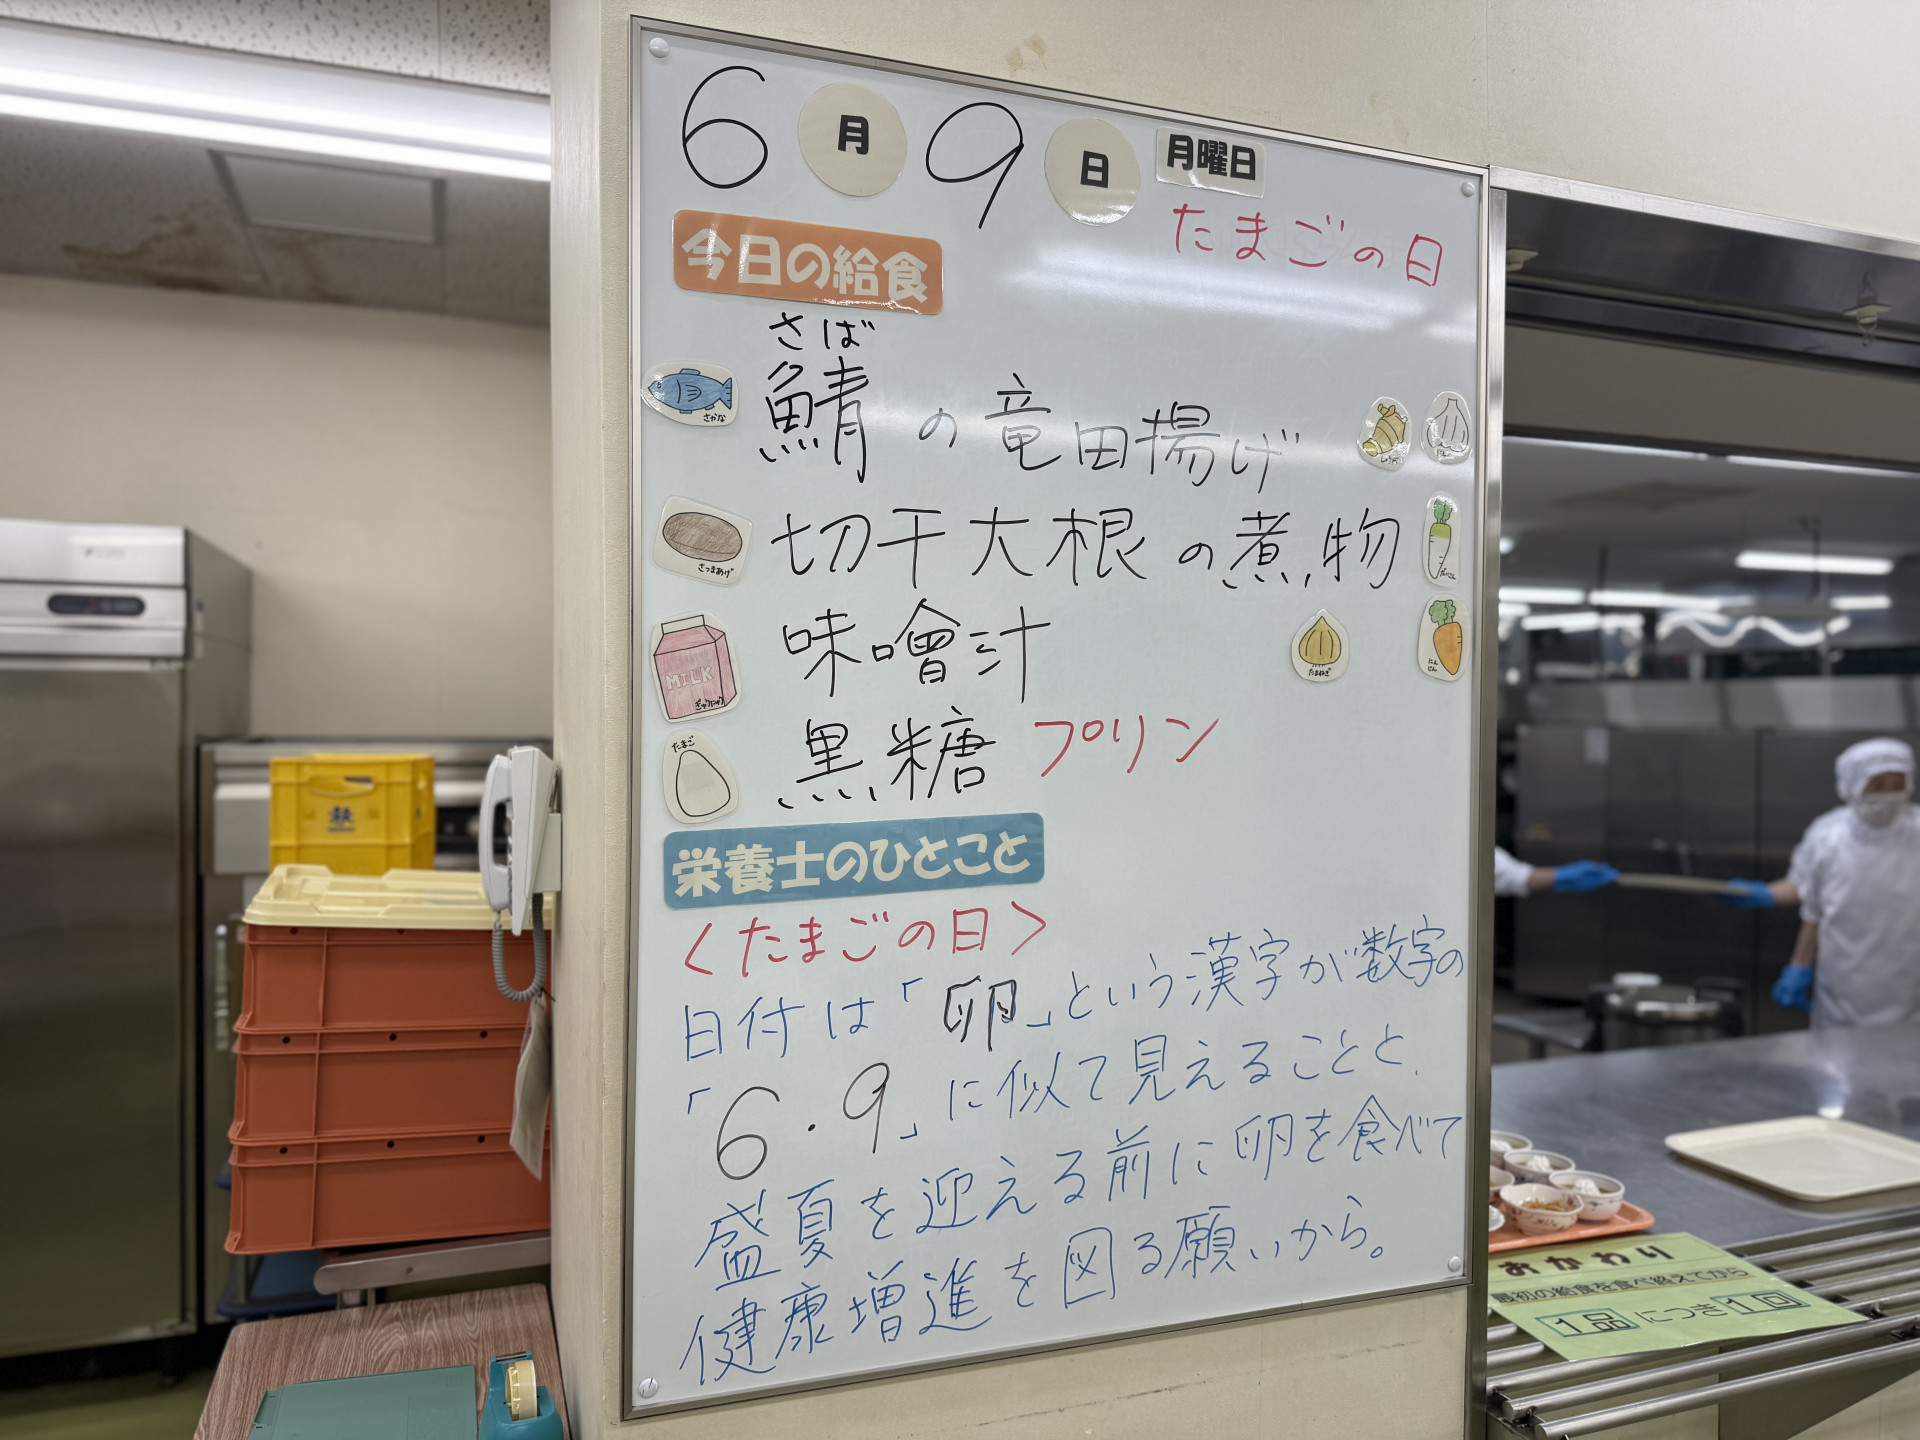 6月9日 月曜日
たまごの日
今日の給食
さば
鯖の竜田揚げ
さかな
切干大根の煮物
さつまあげ
だいこん
味噌汁
MILK
ぎゅうにゅう
たまねぎ
にんじん
黒糖プリン
たまご
栄養士のひとこと
<たまごの日>
日付は「卵」という漢字が数字の
「6・9」に似て見えることと、
盛夏を迎える前に卵を食べて
健康増進を図る願いから。
おかわり
最初の給食を食べ終えてから
1品につき1回